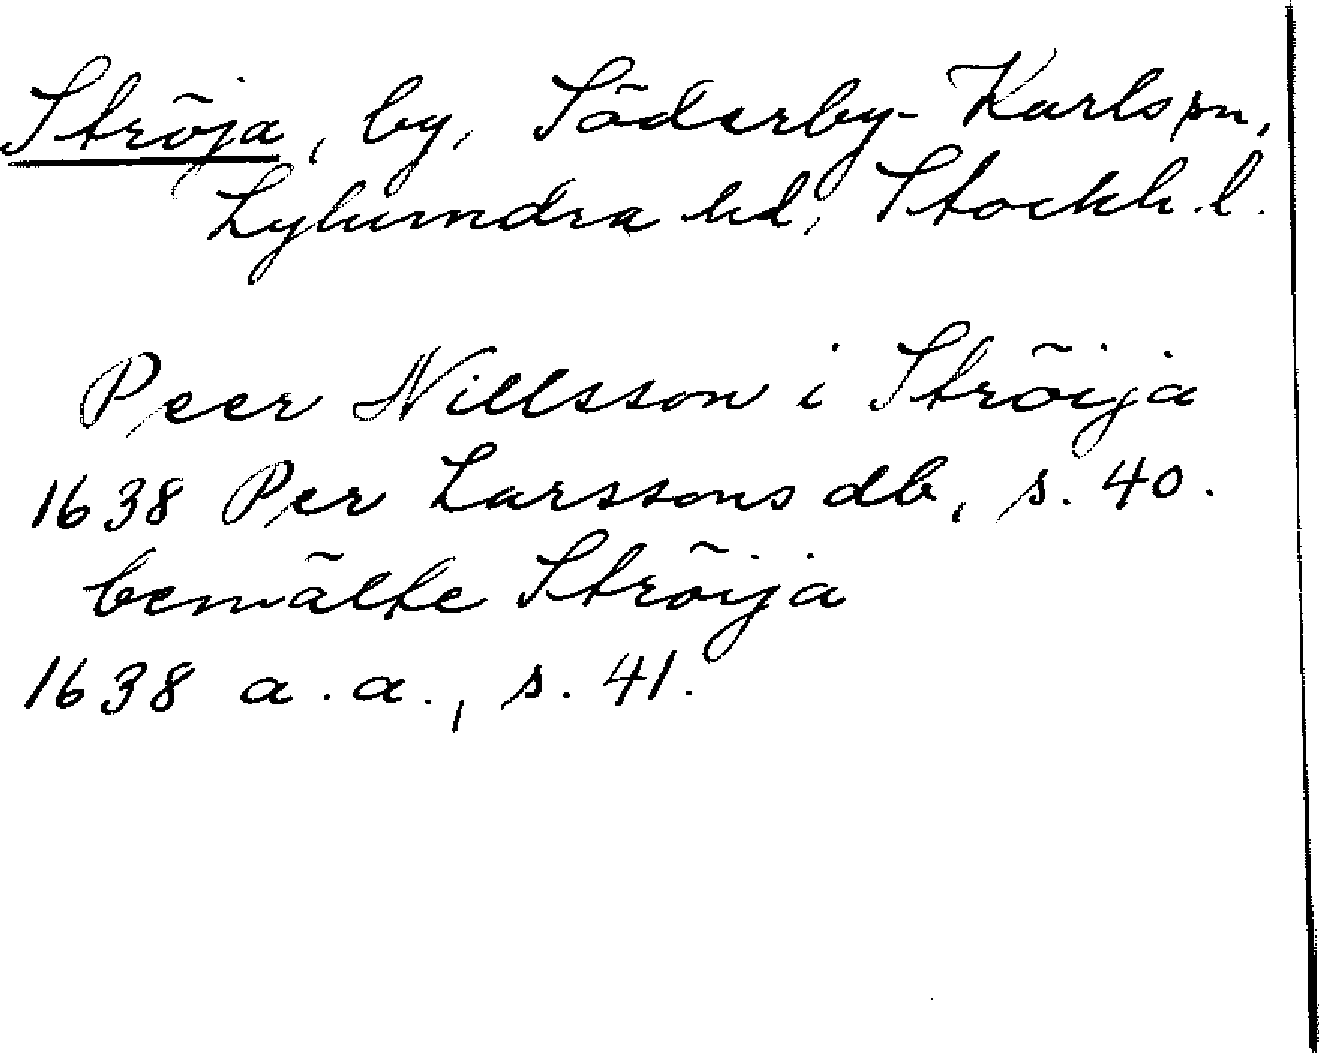 Ströja, by, Söderby-Karls sn,
Lyhundra hd, Stockh. l.
Peer Nillsson i Ströija
1638 Per Larssons db, s. 40.
bemälte Ströija
1638 a.a., s. 41.